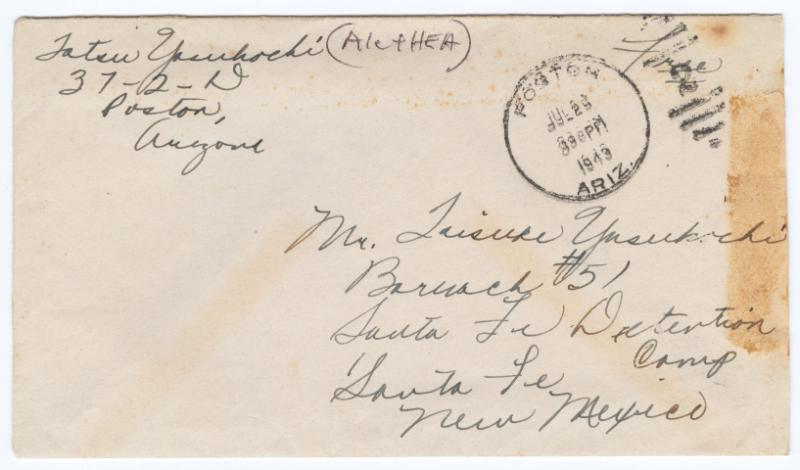 Tatsu Yasukochi (AletHEA)
37-2-D
Poston,
Arizona
Free
POSTON
JUL 23
330PM
1943
ARIZ.
Mr. Taisuke Yasukochi
Barrack #51
Santa Fe Detention
Camp
Santa Fe
New Mexico